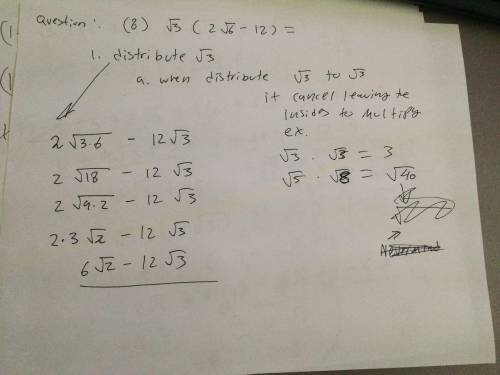 Question: (8) √3 (2√6 - 12) =
1. distribute √3
a. when distribute √3 to √3
it cancel leaving te
insides to multiply
ex.
√3 · √3 = 3
√5 · √8 = √40
2 √3·6 - 12√3
2 √18 - 12 √3
2 √9·2 - 12 √3
2·3 √2 - 12 √3
6√2 - 12√3